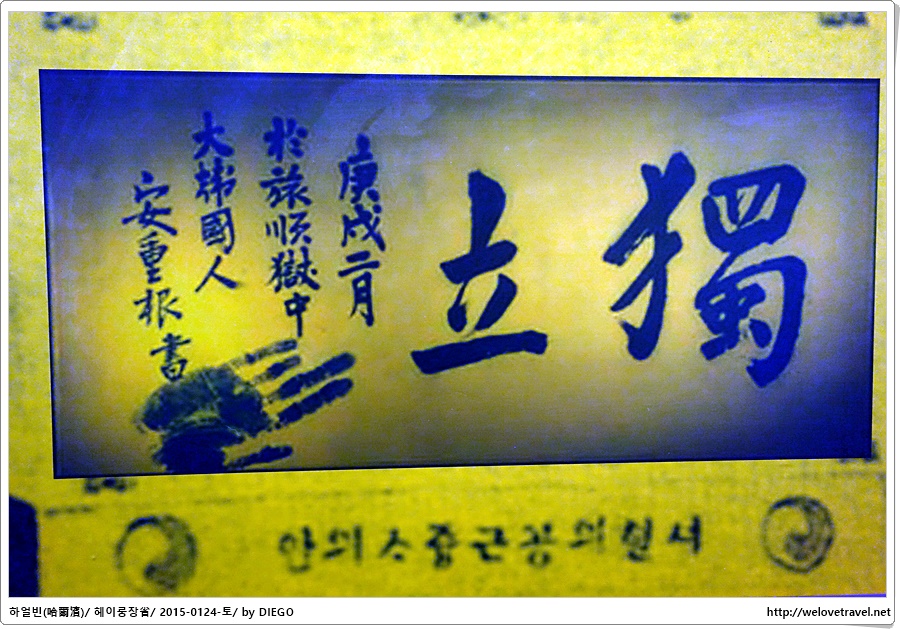 獨立
庚戌二月
於旅順獄中
大韓國人
安重根書
안의사중근공의
하얼빈(哈爾濱)/ 헤이룽장省/ 2015-0124-토/ by DIEGO
http://welovetravel.net